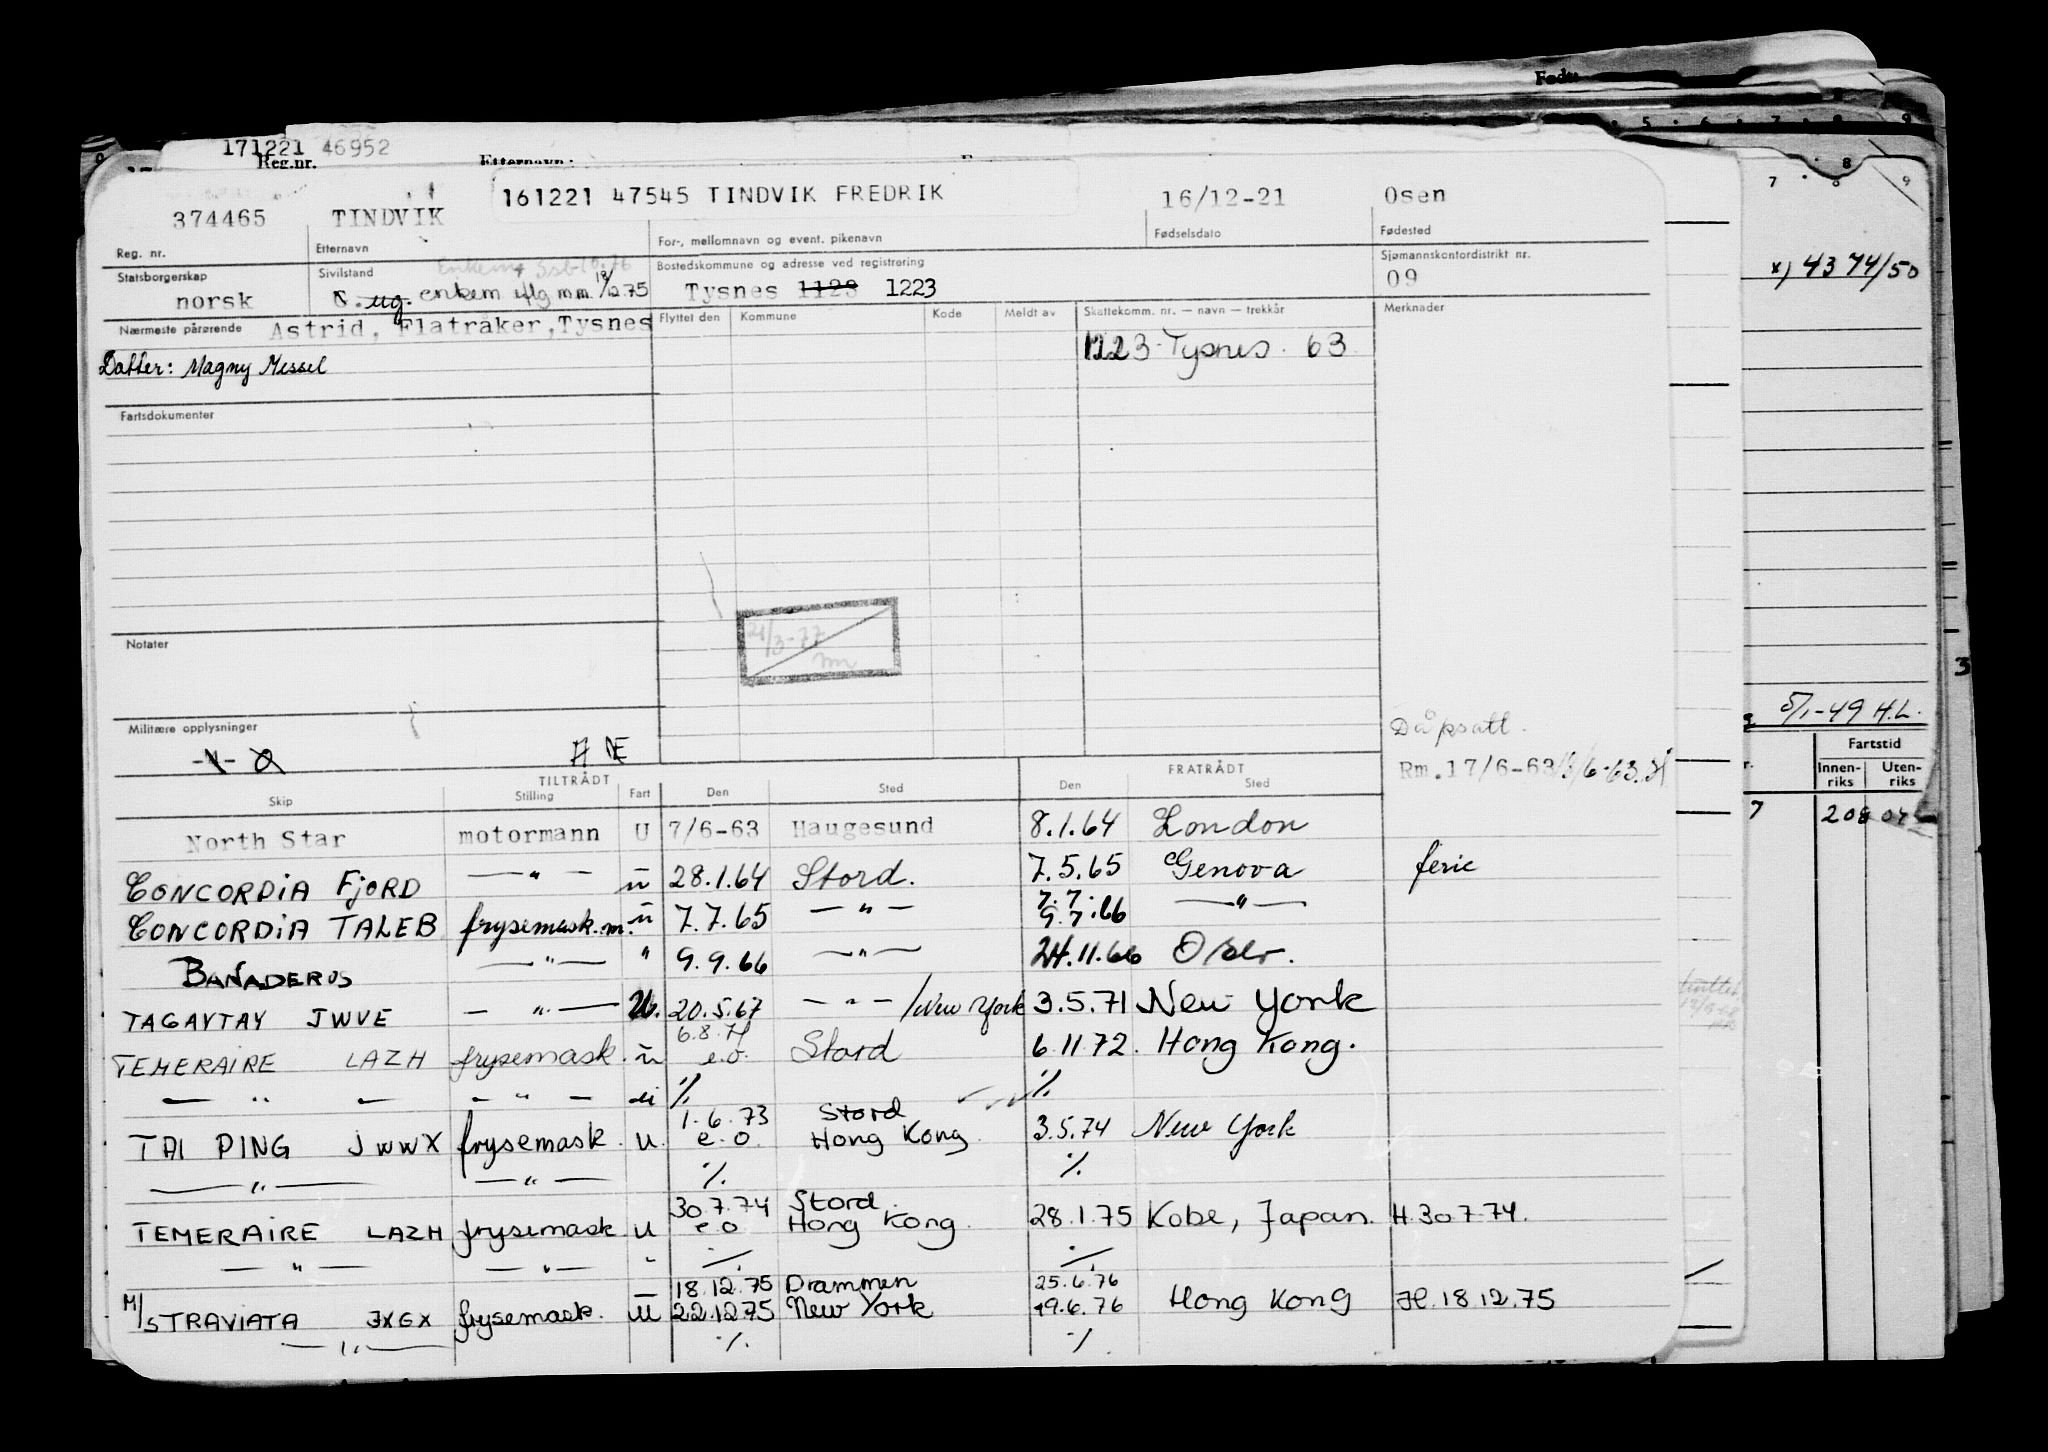 Født:
171221 46952
Reg.nr. Etternavn:
161221 47545 TINDVIK FREDRIK
374465 TINDVIK 16/12-21 Osen
Reg. nr. Etternavn For-, mellomnavn og event. pikenavn Fødselsdato Fødested
Statsborgerskap Sivilstand Bostedskommune og adresse ved registrering Sjømannskontordistrikt nr.
norsk ug. enkem iflg mm 12/12.75 Tysnes 1123 1223 09
Nærmeste pårørende Astrid, Flatråker, Tysnes Flyttet den Kommune Kode Meldt av Skattekomm. nr. — navn — trekkår Merknader
1223 Tysnes. 63
Datter: Magny Messel
Fartsdokumenter
21/3-77
Notater
Militære opplysninger
Dåpsatt.
Rm.17/6-63
TILTRÅDT FRATRÅDT
Skip Stilling Fart Den Sted Den Sted
North Star motormann U 7/6-63 Haugesund 8.1.64 London
CONCORDIA FJORD — " — ū 28.1.64 Stord. 7.5.65 Genova ferie
CONCORDIA TALEB frysemask.m. ū 7.7.65 — " — 7.7. 9.7.66 — " —
BAÑADEROS — " — " 9.9.66 — " — 24.11.66 Oslo.
TAGAYTAY JWVE — " — U. 20.5.67 — " — /New York 3.5.71 New York
TEMERAIRE LAZH frysemask. ū 6.8.71 e.o. Stord 6.11.72. Hong Kong.
— " — — " — ui % %
TAI PING JWWX frysemask. u. 1.6.73 e.o. Stord Hong Kong. 3.5.74 New York
— " — — " — % %
TEMERAIRE LAZH frysemask. u 30.7.74 e.o Stord. Hong Kong. 28.1.75 Kobe, Japan. H.30.7.74.
— " — — " — " % %
M/S TRAVIATA JXGX frysemask. ū 18.12.75 22.12.75 Drammen New York 25.6.76 19.6.76 Hong Kong H.18.12.75
— " — % %
x) 4374/50
5/1-49 H.L.
Fartstid
Innenriks Utenriks
7 208